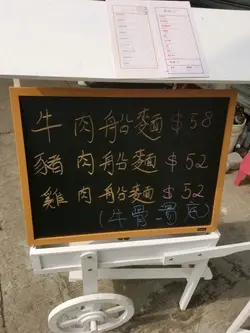 牛肉船麵 $58
豬肉船麵 $52
雞肉船麵 $52
(牛骨湯底)